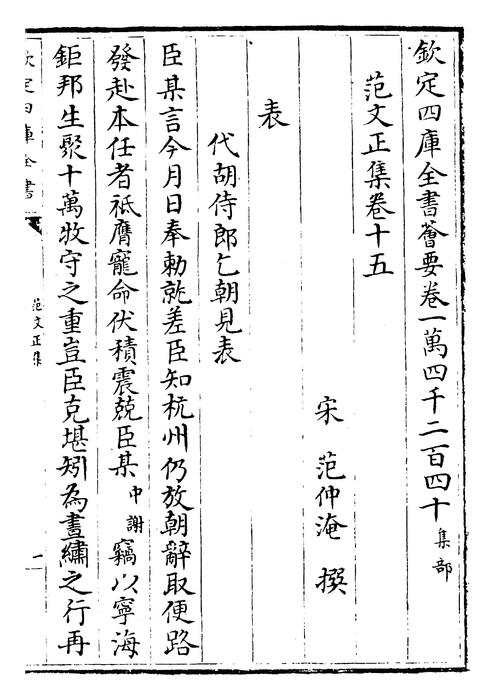 欽定四庫全書薈要卷一萬四千二百四十集部
范文正集卷十五
宋范仲淹撰
表
代胡侍郎乞朝見表
臣某言今月日奉勅就差臣知杭州仍放朝辭取便路
發赴本任者祗膺寵命伏積震兢臣某中謝竊以寧海
鉅邦生聚十萬牧守之重豈臣克堪矧為晝繡之行再
欽定四庫全書
范文正集
一